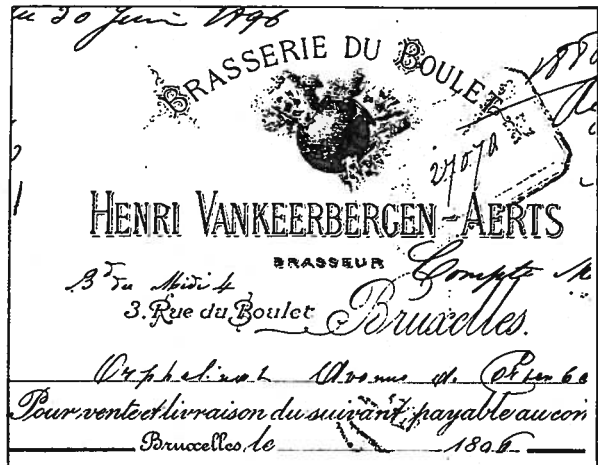 30 Juin 1896
BRASSERIE DU BOULET
27070
HENRI VANKEERBERGEN-AERTS
BRASSEUR
Compte
Bd du Midi 4
3. Rue du Boulet Bruxelles.
Orphelinat Avenue de
Pour vente et livraison du suivant, payable au con
Bruxelles, le 1896